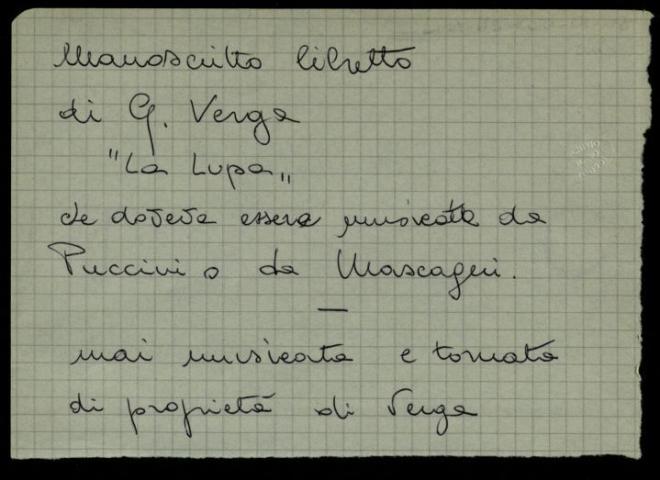 Manoscritto libretto
di G. Verga
"La Lupa"
che doveva essere musicata da
Puccini o da Mascagni.
—
mai musicata e tornata
di proprietà di Verga